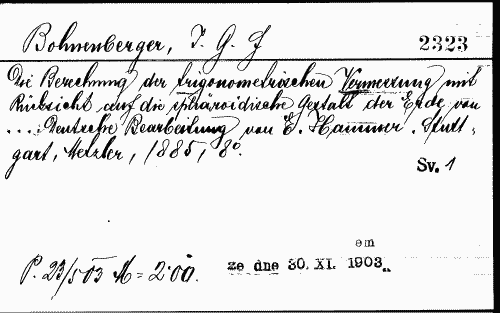 Bohnenberger, J. G. F
2323
Die Berechnung der trigonometrischen Vermessung mit
Rücksicht auf die sphäroidische Gestalt der Erde von
....: Deutsche Bearbeitung von E. Hammer. Stutt-
gart, Metzler, 1885, 8°.
Sv. 1
em
P. 23/503 M = 2·00.
ze dne 30. XI. 1903.